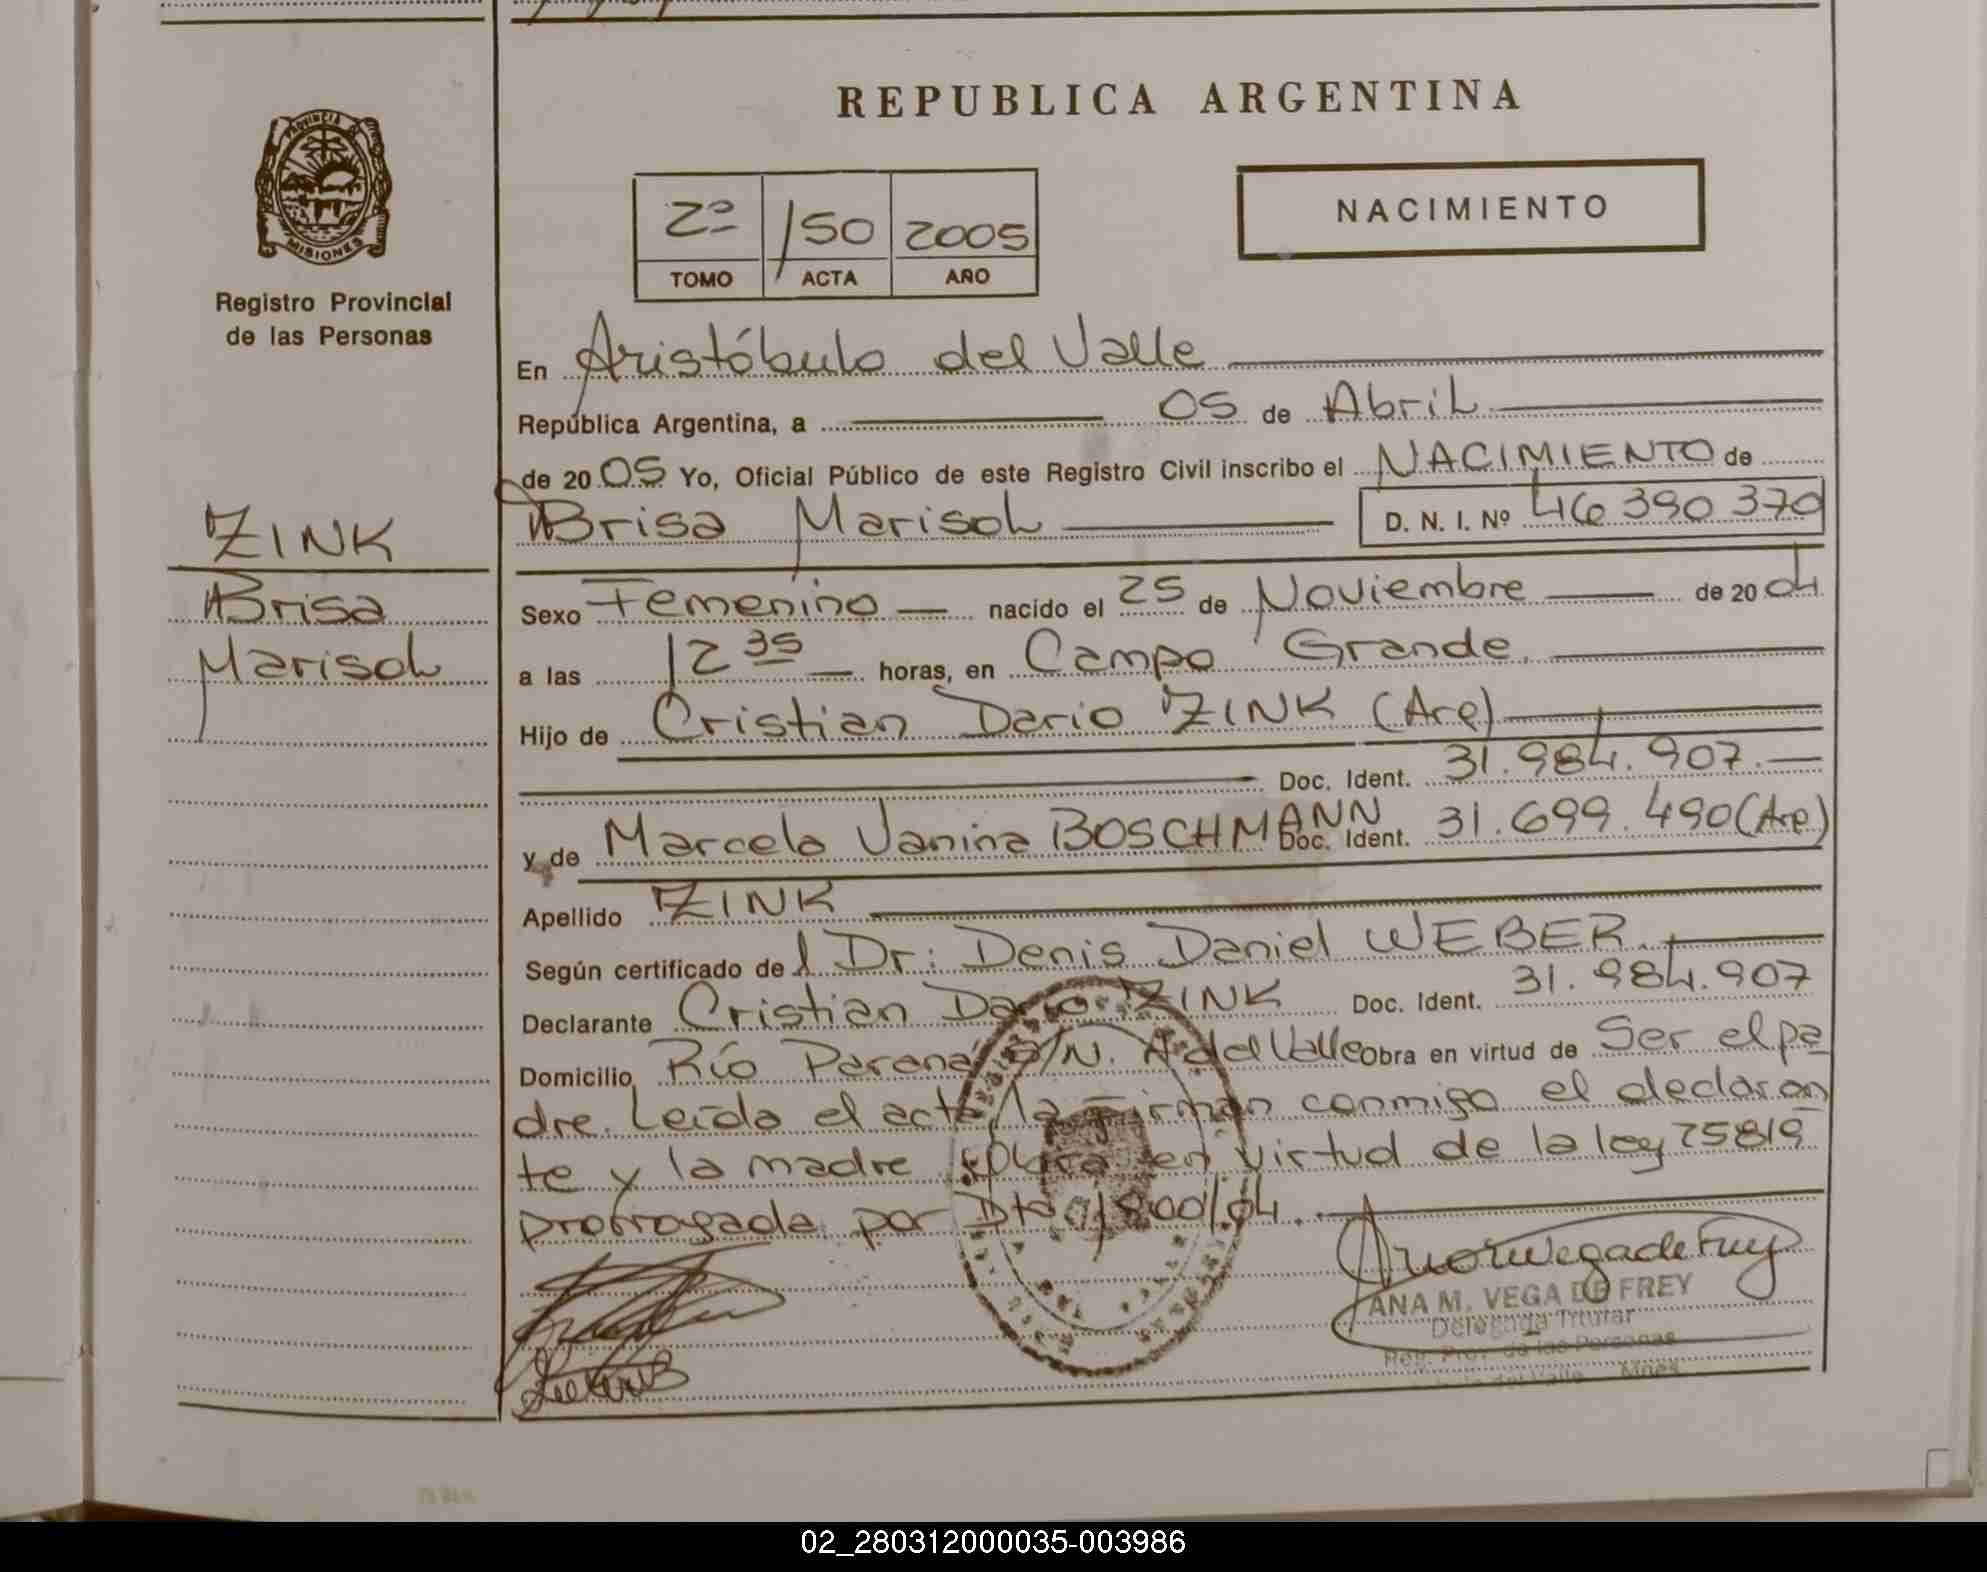 REPUBLICA ARGENTINA
PROVINCIA DE
MISIONES
Registro Provincial
de las Personas
2º /50 2005
TOMO ACTA AÑO
NACIMIENTO
En Aristóbulo del Valle
República Argentina, a 05 de Abril
de 2005 Yo, Oficial Público de este Registro Civil inscribo el NACIMIENTO de
Brisa Marisol D. N. I. Nº 46 390 370
ZINK
Brisa
Marisol
Sexo Femenino nacido el 25 de Noviembre de 2004
a las 12 35 horas, en Campo Grande.
Hijo de Cristian Dario ZINK (Arg)
Doc. Ident. 31.984.907.
y de Marcela Vanina BOSCHMANN Doc. Ident. 31.699.490 (Arg)
Apellido ZINK
Según certificado del Dr: Denis Daniel WEBER.
Declarante Cristian Dario ZINK Doc. Ident. 31.984.907
Domicilio Río Paraná S/N. A del Valle Obra en virtud de Ser el pa
dre. Leída el acta la firman conmigo el declaran
te y la madre en virtud de la ley 25819
prorrogada por Dto 1800/04.
ANA M. VEGA DE FREY
Delegada Titular
Reg. Prov. de las Personas
del Valle Mnes
02_280312000035-003986